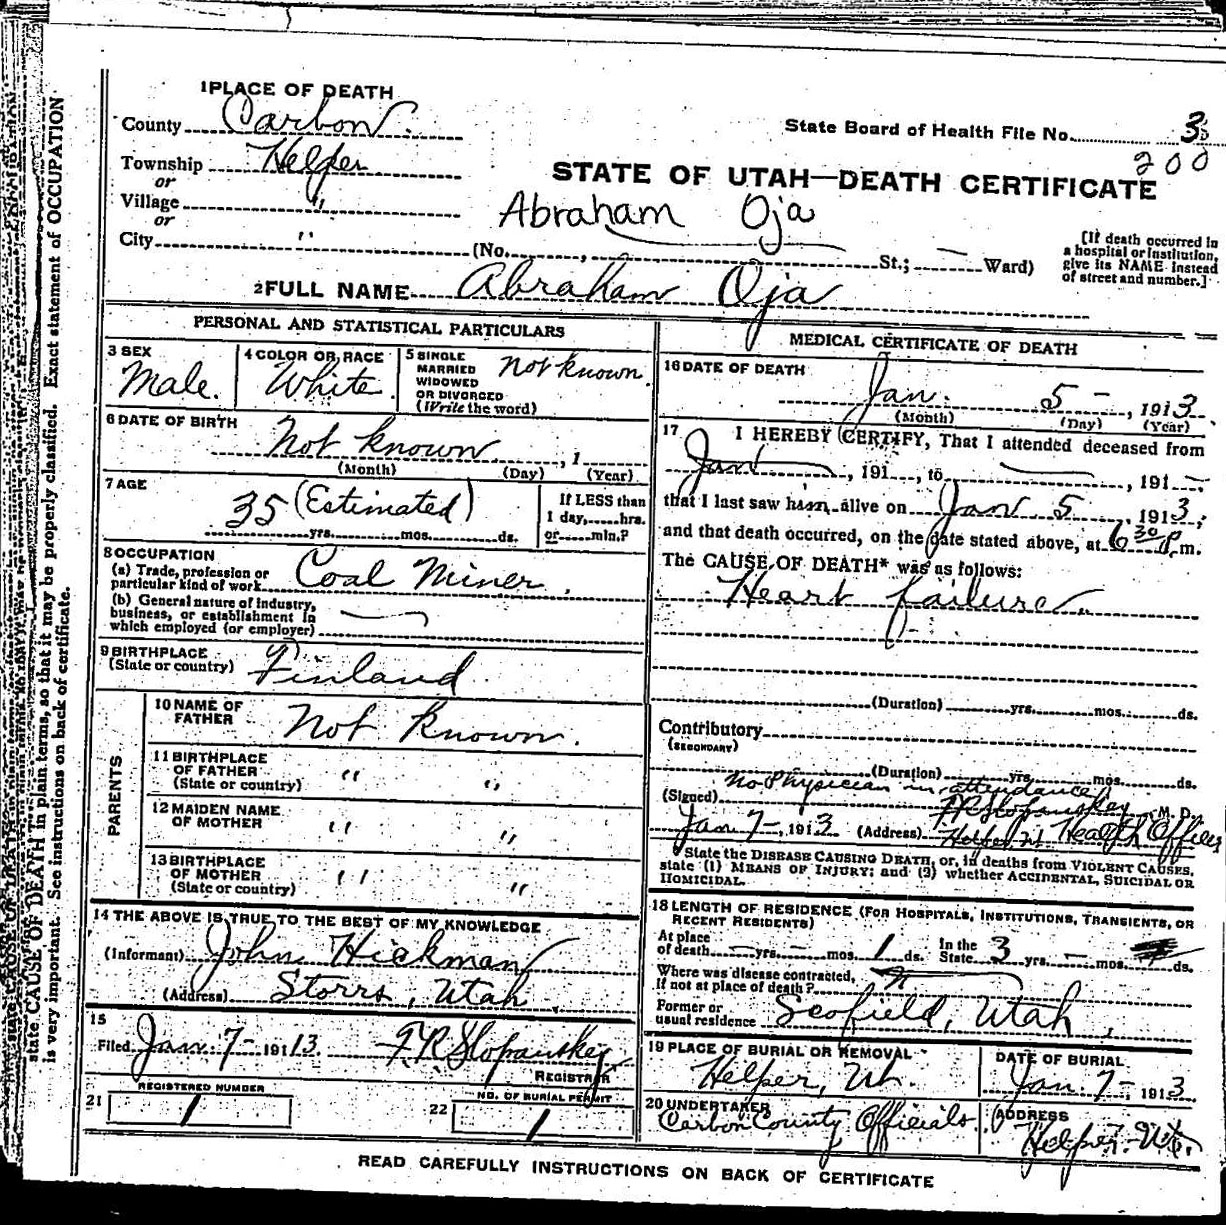 1 PLACE OF DEATH
County Carbon
State Board of Health File No. 3
Township Helper
200
or
STATE OF UTAH—DEATH CERTIFICATE
Village "
or
Abraham Oja
City " (No. , St.; Ward)
[If death occurred in a hospital or institution, give its NAME instead of street and number.]
2 FULL NAME Abraham Oja
PERSONAL AND STATISTICAL PARTICULARS
3 SEX Male.
4 COLOR OR RACE White
5 SINGLE MARRIED WIDOWED OR DIVORCED (Write the word) Not known.
6 DATE OF BIRTH
Not known , 1
(Month) (Day) (Year)
7 AGE
35 (Estimated)
yrs. mos. ds.
If LESS than 1 day, hrs. or min.?
8 OCCUPATION
(a) Trade, profession or particular kind of work Coal Miner.
(b) General nature of industry, business, or establishment in which employed (or employer)
9 BIRTHPLACE (State or country) Finland
PARENTS
10 NAME OF FATHER Not Known.
11 BIRTHPLACE OF FATHER (State or country) " "
12 MAIDEN NAME OF MOTHER " "
13 BIRTHPLACE OF MOTHER (State or country) " "
14 THE ABOVE IS TRUE TO THE BEST OF MY KNOWLEDGE
(Informant) John Hickman
(Address) Storrs, Utah.
15
Filed Jan. 7- 191 13. F.R. Slopanskey
REGISTRAR
REGISTERED NUMBER
21 1
NO. OF BURIAL PERMIT
22 1
MEDICAL CERTIFICATE OF DEATH
16 DATE OF DEATH
Jan. 5 - , 1913
(Month) (Day) (Year)
17 I HEREBY CERTIFY, That I attended deceased from
Jan , 191 , to , 191
that I last saw him alive on Jan 5 , 1913;
and that death occurred, on the date stated above, at 6 30 P m.
The CAUSE OF DEATH* was as follows:
Heart failure.
(Duration) yrs. mos. ds.
Contributory
(SECONDARY)
(Duration) yrs. mos. ds.
No Physician in attendance
(Signed) F.R. Slopanskey M. D.
Jan 7-, 1913 (Address) Helper Ut Health Officer
* State the DISEASE CAUSING DEATH, or, in deaths from VIOLENT CAUSES,
state (1) MEANS OF INJURY; and (2) whether ACCIDENTAL, SUICIDAL OR
HOMICIDAL.
18 LENGTH OF RESIDENCE (FOR HOSPITALS, INSTITUTIONS, TRANSIENTS, OR
RECENT RESIDENTS)
At place of death — yrs. — mos. 1 ds. In the State 3 yrs. — mos. ds.
Where was disease contracted, If not at place of death?
Former or usual residence Scofield, Utah,
19 PLACE OF BURIAL OR REMOVAL
Helper, Ut.
DATE OF BURIAL
Jan. 7-, 1913
20 UNDERTAKER
Carbon County Officials.
ADDRESS
Helper. Ut.
READ CAREFULLY INSTRUCTIONS ON BACK OF CERTIFICATE
state CAUSE OF DEATH in plain terms, so that it may be properly classified. Exact statement of OCCUPATION
is very important. See instructions on back of certificate.